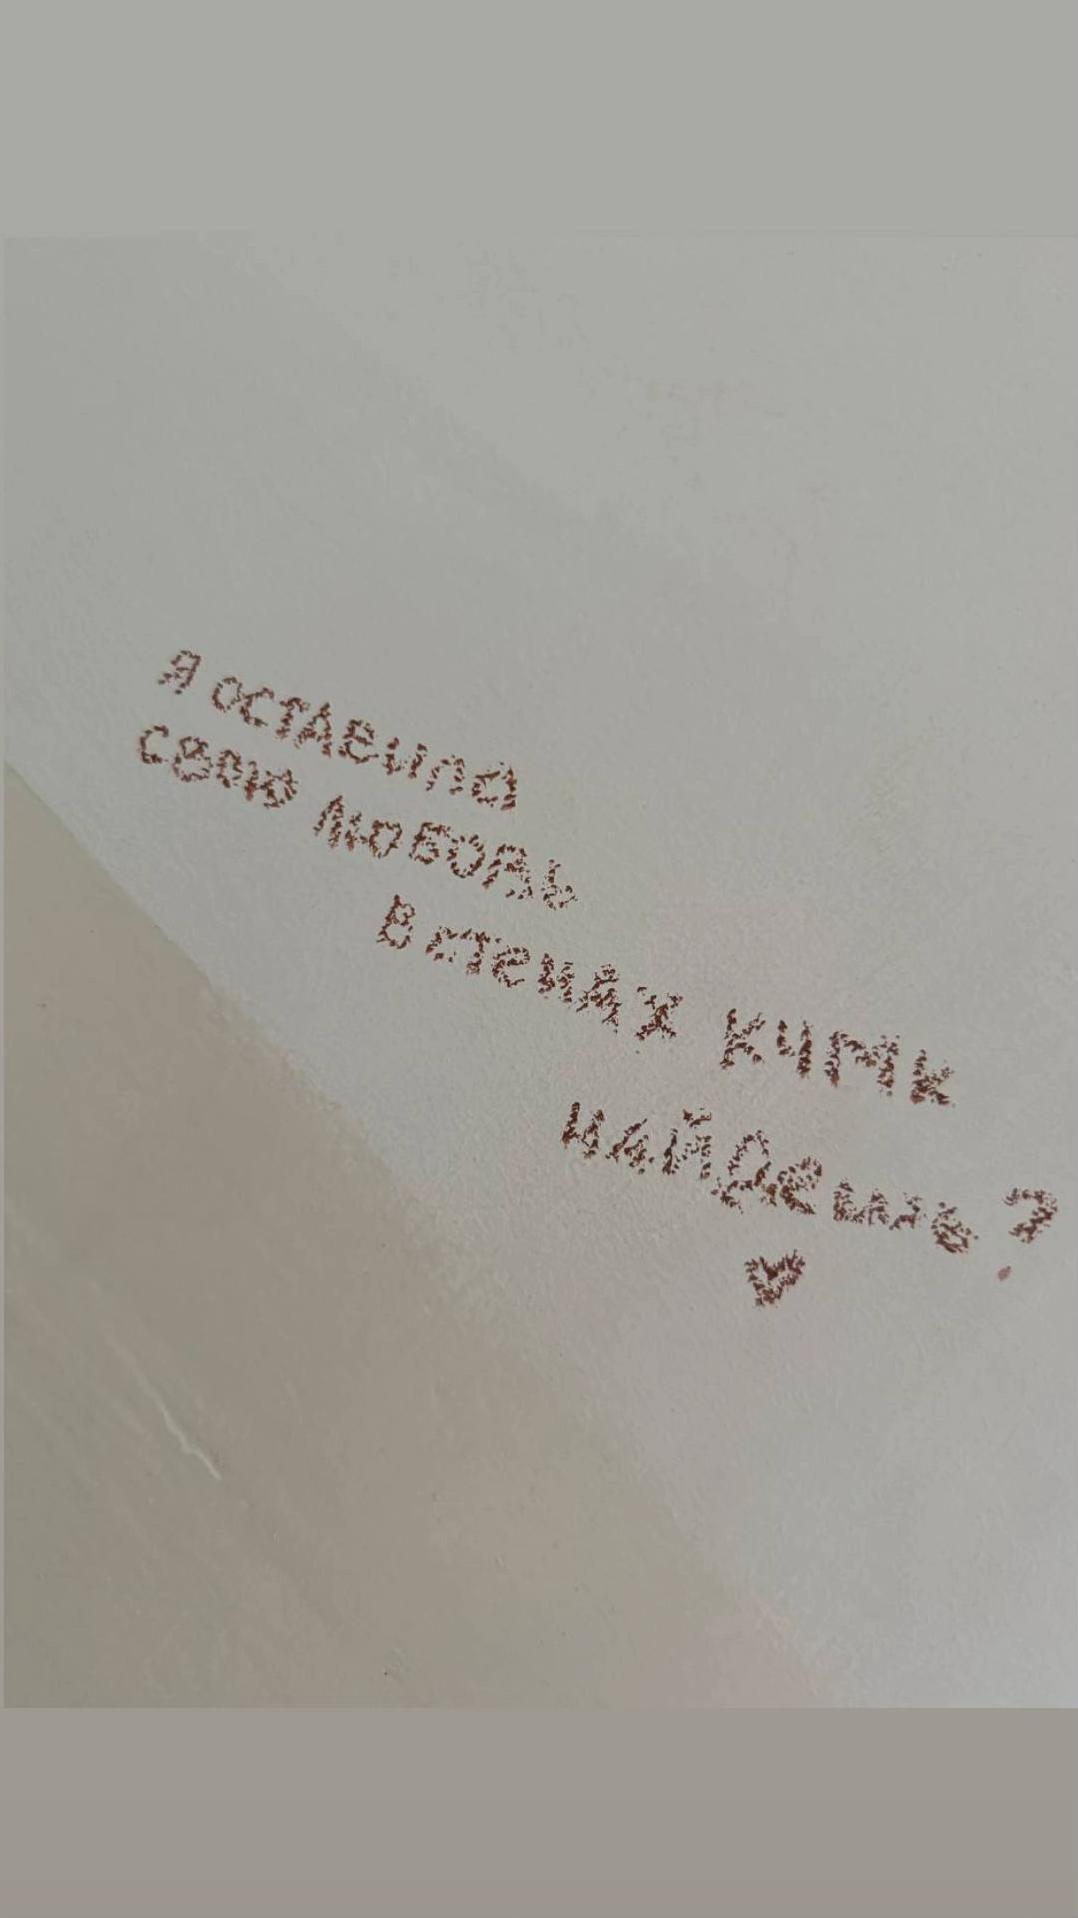 Я ОСТАВИЛА
СВОЮ ЛЮБОВЬ
В СТЕНАХ КЧМК
НАЙДЕШЬ?
♥